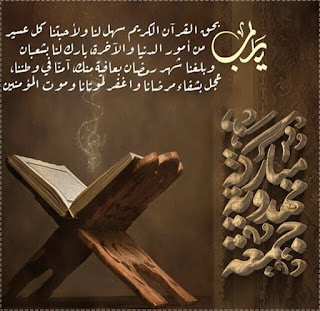 يارب
بحق القرآن الكريم سهل لنا ولأحبتنا كل عسير
من أمور الدنيا والآخرة، بارك لنا بشعبان
وبلغنا شهر رمضان بعافية منك، آمنا في وطننا،
عجل بشفاء مرضانا واغفر لموتانا وموت المؤمنين
جمعة
مهدوية
مباركة